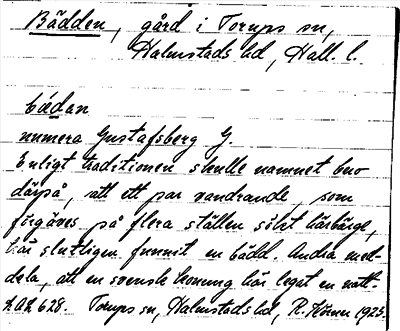 Bädden, gård i Torups sn,
Halmstads hd, Hall. l.
bädan
numera Gustafsberg G.
Enligt traditionen skulle namnet bero
därpå, att ett par vandrande, som
förgäves på flera ställen sökt härbärge,
här slutligen funnit en bädd. Andra med-
dela, att en svensk konung här legat en natt.
LAL 628. Torups sn, Halmstads hd, R. 1925.